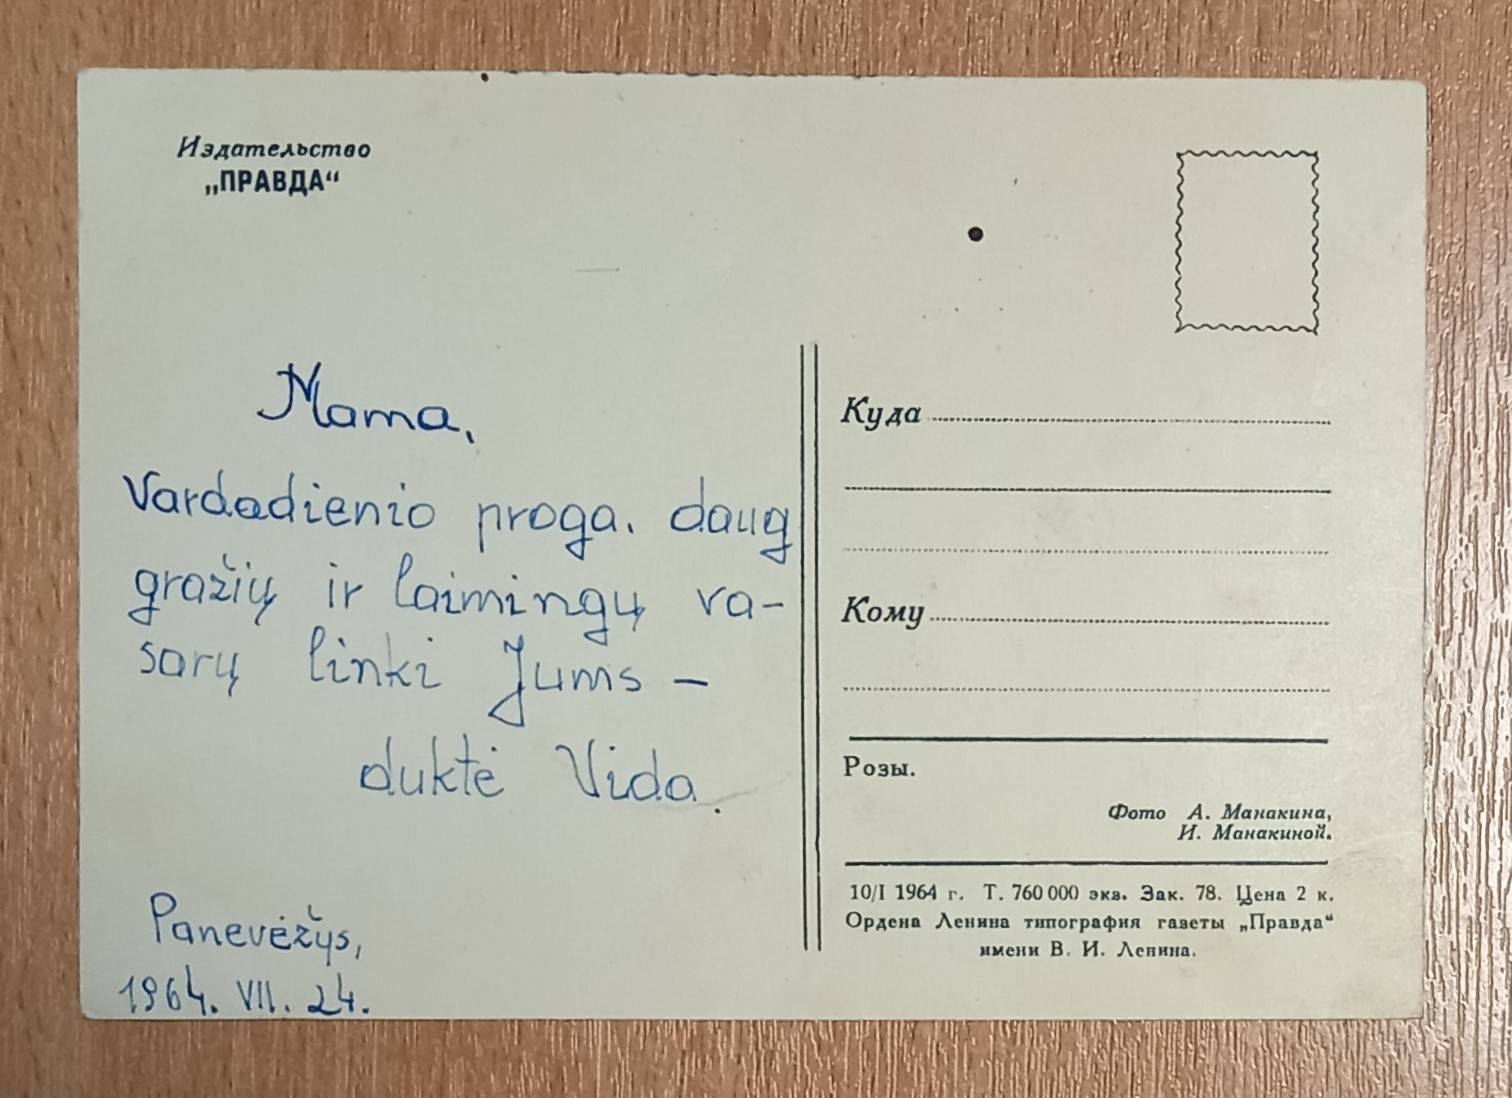 Издательство
„ПРАВДА“
Mama,
Vardadienio proga. daug
gražių ir laimingų va-
sarų linki Jums –
duktė Vida.
Panevėžys,
1964. VII. 24.
Куда
Кому
Розы.
Фото А. Манакина,
И. Манакиной.
10/I 1964 г. Т. 760 000 экз. Зак. 78. Цена 2 к.
Ордена Ленина типография газеты „Правда“
имени В. И. Ленина.